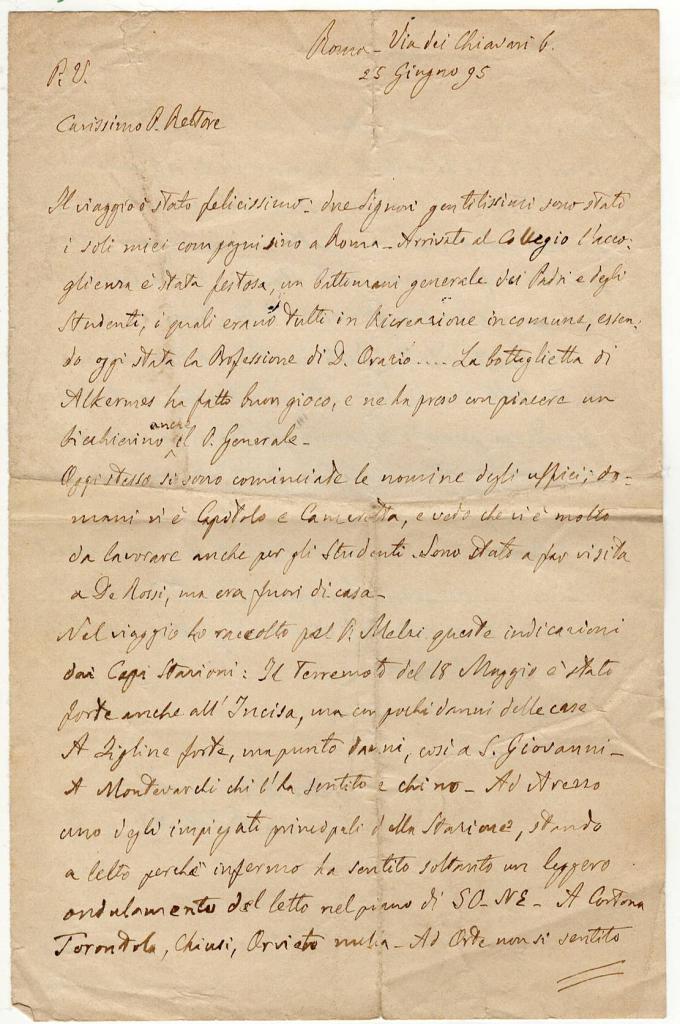 Roma - Via dei Chiavari 6.
25 Giugno 95
P. V.
Carissimo P. Rettore
Il viaggio è stato felicissimo: due Signori gentilissimi sono stati
i soli miei compagni sino a Roma - Arrivato al Collegio l'acco-
glienza è stata festosa, un battimani generale dei Padri e degli
Studenti, i quali erano tutti in Ricreazione in comune, essen-
do oggi stata la Professione di D. Orazio.... La bottiglietta di
Alkermes ha fatto buon gioco, e ne ha preso con piacere un
bicchierino anche il P. Generale -
Oggi stesso si sono cominciate le nomine degli uffici; do-
mani vi è Capitolo e Cameretta, e vedo che vi è molto
da lavorare anche per gli Studenti. Sono stato a far visita
a De Rossi, ma era fuori di casa -
Nel viaggio ho raccolto pel P. Melzi queste indicazioni
dai Capi Stazioni: Il Terremoto del 18 Maggio è stato
forte anche all'Incisa, ma con pochi danni delle case
A Figline forte, ma punto danni, così a S. Giovanni -
A Montevarchi chi l'ha sentito e chi no - Ad Arezzo
uno degli impiegati principali della Stazione, stando
a letto perchè infermo ha sentito soltanto un leggero
ondulamento del letto nel piano di SO-NE - A Cortona
Torontola, Chiusi, Orvieto nulla - Ad Orte non si sentito